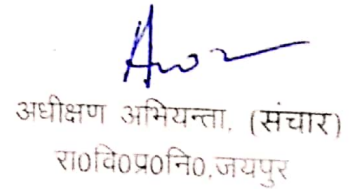 अधीक्षण अभियन्ता, (संचार)
रा0वि0प्र0नि0,जयपुर